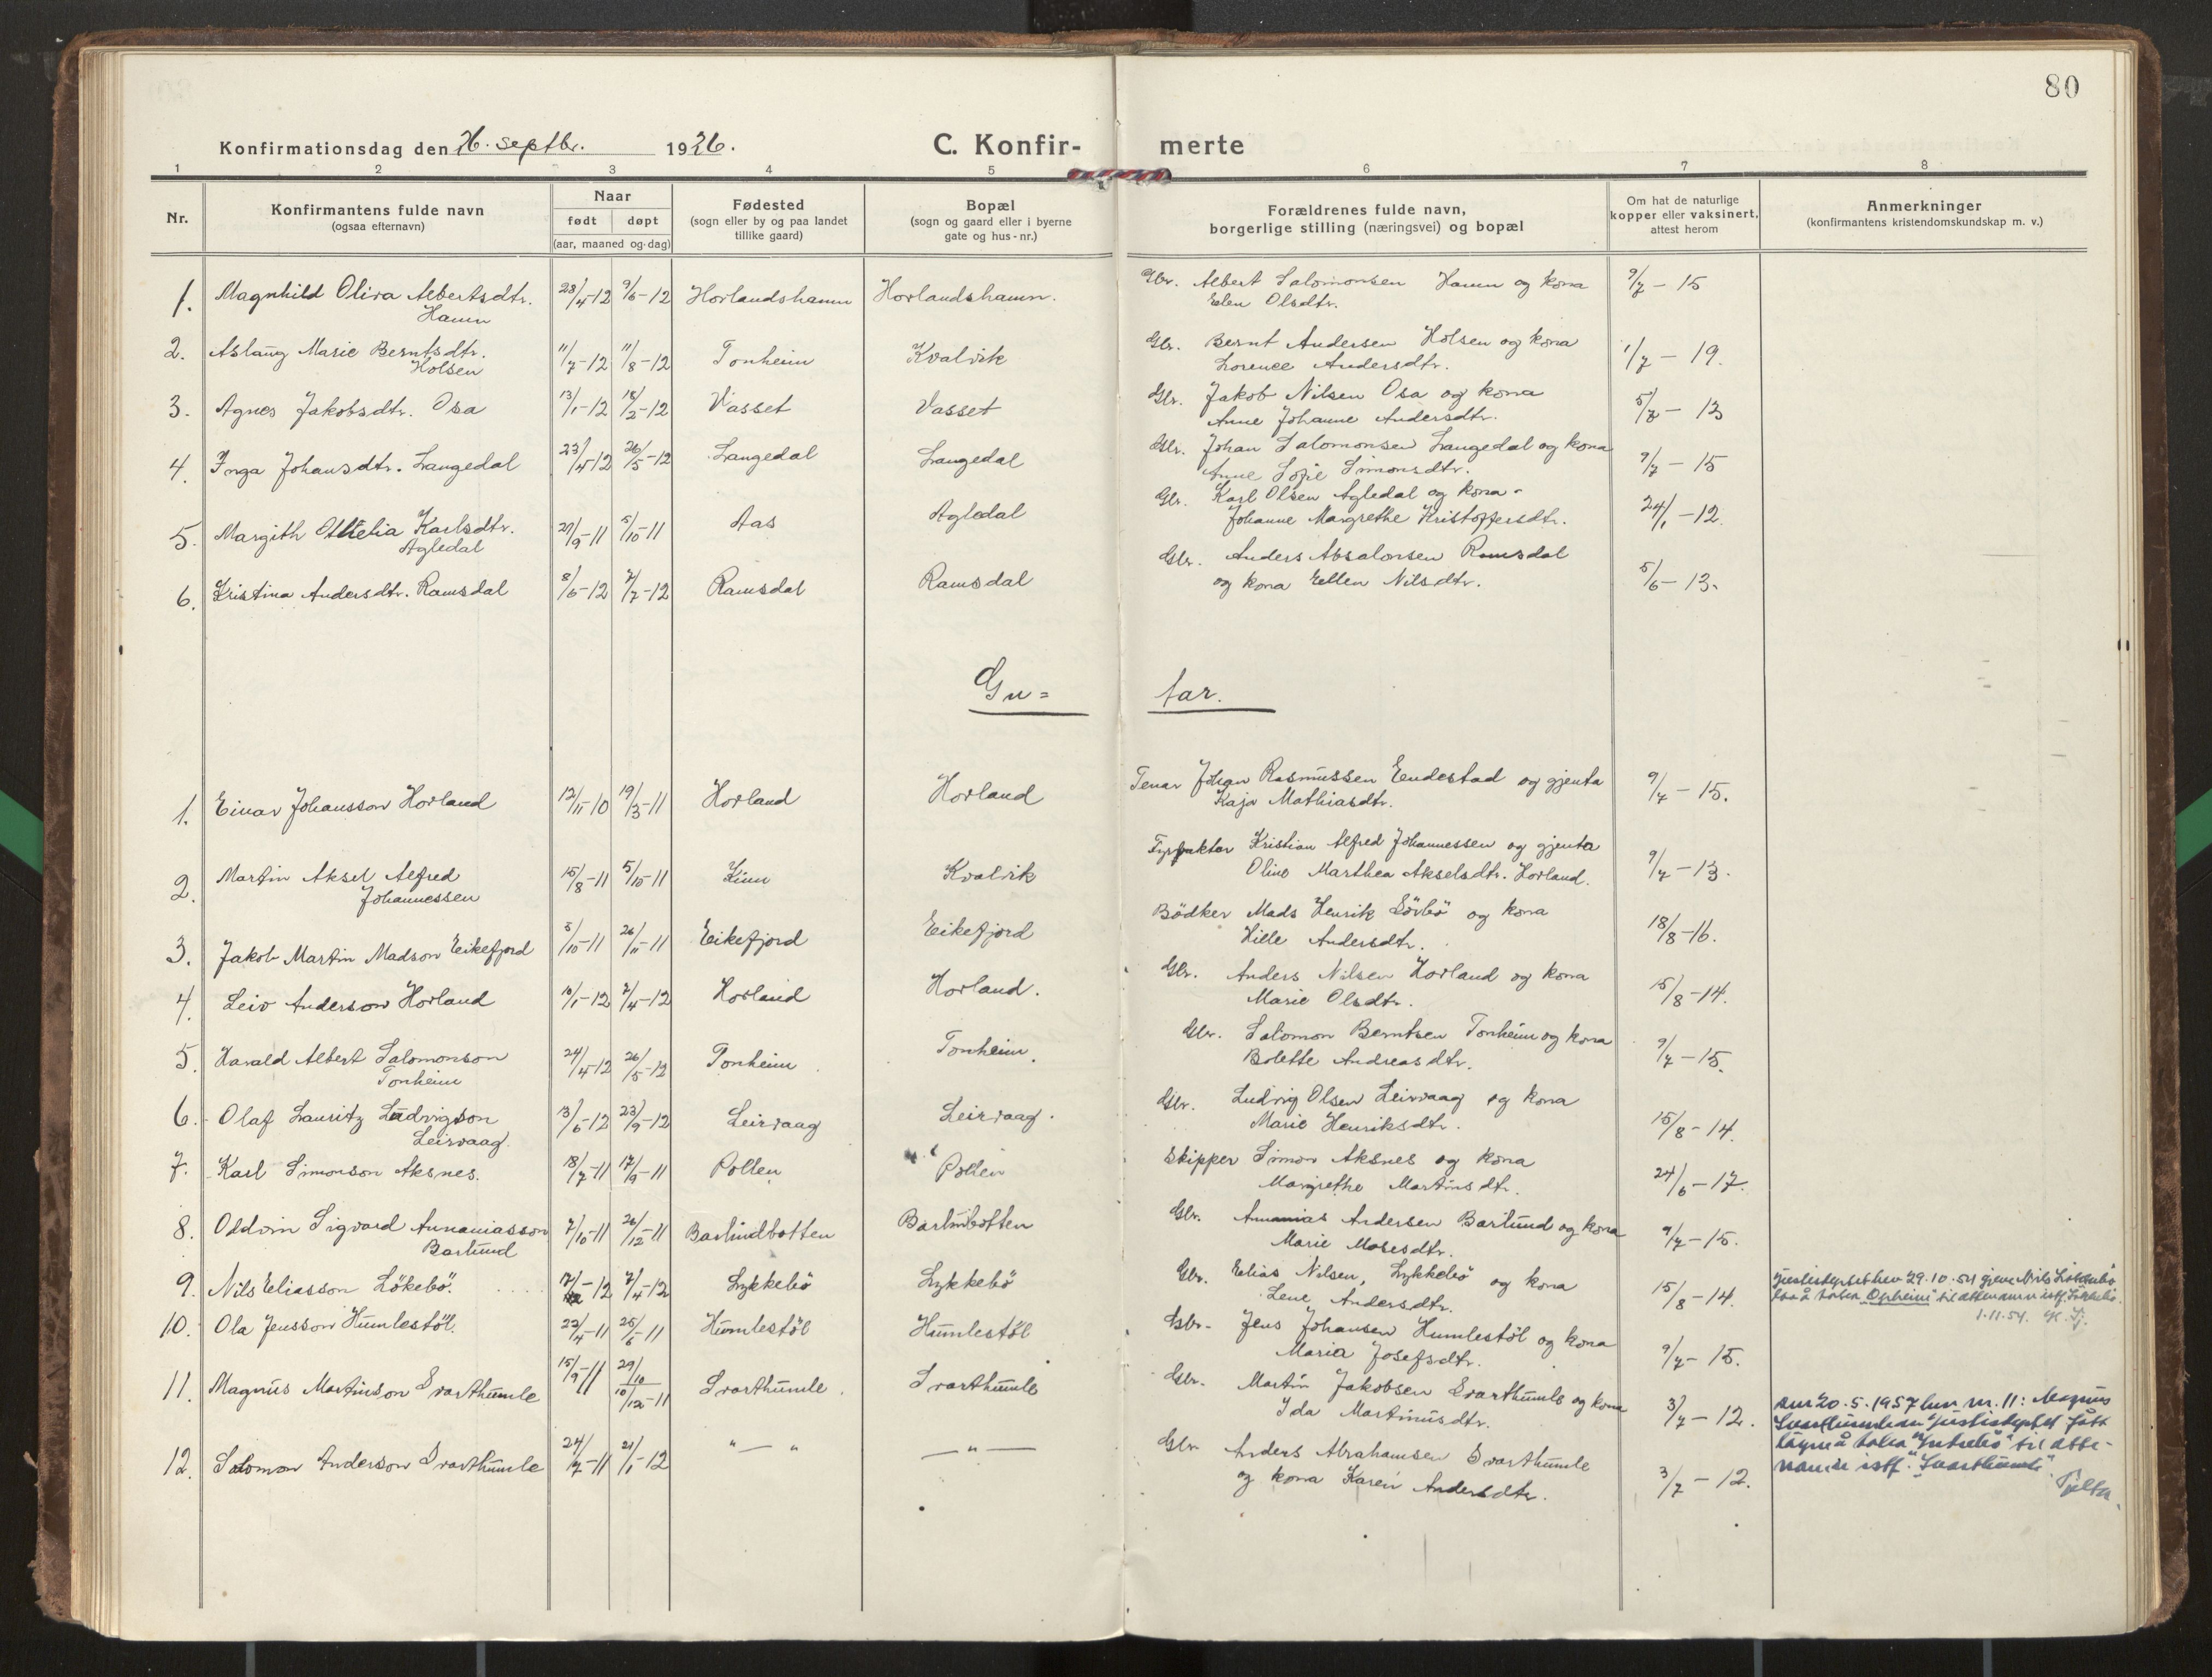 80
Konfirmationsdag den 26. septbr. 1926.
C. Konfir- merte
1 2 3 4 5 6 7 8
Nr.
Konfirmantens fulde navn
(ogsaa efternavn)
Naar
født døpt
(aar, maaned og dag)
Fødested
(sogn eller by og paa landet
tillike gaard)
Bopæl
(sogn og gaard eller i byerne
gate og hus-nr.)
Forældrenes fulde navn,
borgerlige stilling (næringsvei) og bopæl
Om hat de naturlige
kopper eller vaksinert,
attest herom
Anmerkninger
(konfirmantens kristendomskundskap m. v.)
1. Magnhild Oliva Albertsdtr. 28/4-12 9/6-12 Horlandshamn Horlandshamn. Gbr. Albert Salomonsen Hamn og kona 9/7 - 15
Hamn Elen Olsdtr.
2. Aslaug Marie Berntsdtr. 11/7-12 11/8-12 Tonheim Kvalvik Gbr. Bernt Andersen Holsen og kona 1/7 - 19.
Holsen Lorence Andersdtr.
3. Agnes Jakobsdtr. Osa 13/1-12 18/2-12 Vasset Vasset Gbr. Jakob Nilsen Osa og kona 5/8 - 13
Anne Johanne Andersdtr.
4. Inga Johansdtr. Langedal 23/4-12 26/5-12 Langedal Langedal Gbr. Johan Salomonsen Langedal og kona 9/7 - 15
Anne Sofie Simonsdtr.
5. Margith Othelia Karlsdtr. 27/9-11 5/10-11 Aas Agledal Gbr. Karl Olsen Agledal og kona - 24/1 - 12.
Agledal Johanne Margrethe Kristoffersdtr.
6. Kristina Andersdtr. Ramsdal 8/6-12 7/7-12 Ramsdal Ramsdal Gbr. Anders Absalonsen Ramsdal 5/6 - 13.
og kona Ellen Nilsdtr.
Gu= tar.
1. Einar Johansson Horland 12/11-10 19/3-11 Horland Horland Tenar Johan Rasmussen Endestad og gjenta 9/7 - 15.
Kaja Mathiasdtr.
2. Martin Aksel Alfred 15/8-11 5/10-11 Kinn Kvalvik Fyrpaktar Kristian Alfred Johannessen og gjenta 9/7 - 13.
Johannessen Oline Marthea Akselsdtr. Horland.
3. Jakob Martin Madson Eikefjord 5/10-11 26/11-11 Eikefjord Eikefjord Bödker Mads Henrik Lörbö og kona 18/8-16.
Hille Andersdtr.
4. Leiv Anderson Horland 10/1-12 7/4-12 Horland Horland. Gbr. Anders Nilsen Horland og kona 15/8-14.
Marie Olsdtr.
5. Harald Albert Salomonson 24/4-12 26/5-12 Tonheim Tonheim. Gbr. Salomon Berntsen Tonheim og kona 9/7-15.
Tonheim Bolette Andreasdtr.
6. Olaf Lauritz Ludvigson 13/6-12 23/9-12 Leirvaag Leirvaag. Gbr. Ludvig Olsen Leirvaag og kona 15/8-14.
Leirvaag. Marie Henriksdtr.
7. Karl Simonson Aksnes. 18/7-11 17/9-11 Pollen Pollen Skipper Simon Aksnes og kona 24/6-17.
Margrethe Martinsdtr.
8. Oddvin Sigvard Annaniasson 7/10-11 26/12-11 Barlindbotten Barlinbotten Gbr. Ananias Andersen Barlund og kona 9/7-15.
Barlund Marie Mosesdtr.
9. Nils Eliasson Lökebö. 17/-12 7/4-12 Lykkebö Lykkebö Gbr. Elias Nilsen, Lykkebö og kona 15/8-14.
Lene Andersdtr.
Justisdept. hev 29.10.54 gjeve Nils Lökkebö
lov å taka "Opheim" til etternamn istf. Lökkebö.
1.11.54.
10. Ola Jensson Humlestöl. 22/4-11 25/5-11 Humlestöl Humlestöl Gbr. Jens Johansen Humlestöl og kona 9/7-15.
Maria Josefsdtr.
11. Magnus Martinson Svarthumle 15/9-11 29/10 10/12-11 Svarthumle. Svarthumle Gbr. Martin Jakobsen Svarthumle og kona 3/7-12.
Ida Martinusdtr.
den 20.5.1957 hev nr. 11: Magnus
Svarthumle av justisdeptet fått
löyve å taka til etter-
namn istf. "Svarthumle".
12. Salomon Anderson Svarthumle 24/7-11 21/1-12 " — " — " — Gbr Anders Abrahamsen Svarthumle 3/7-12.
og kona Karen Andersdtr.